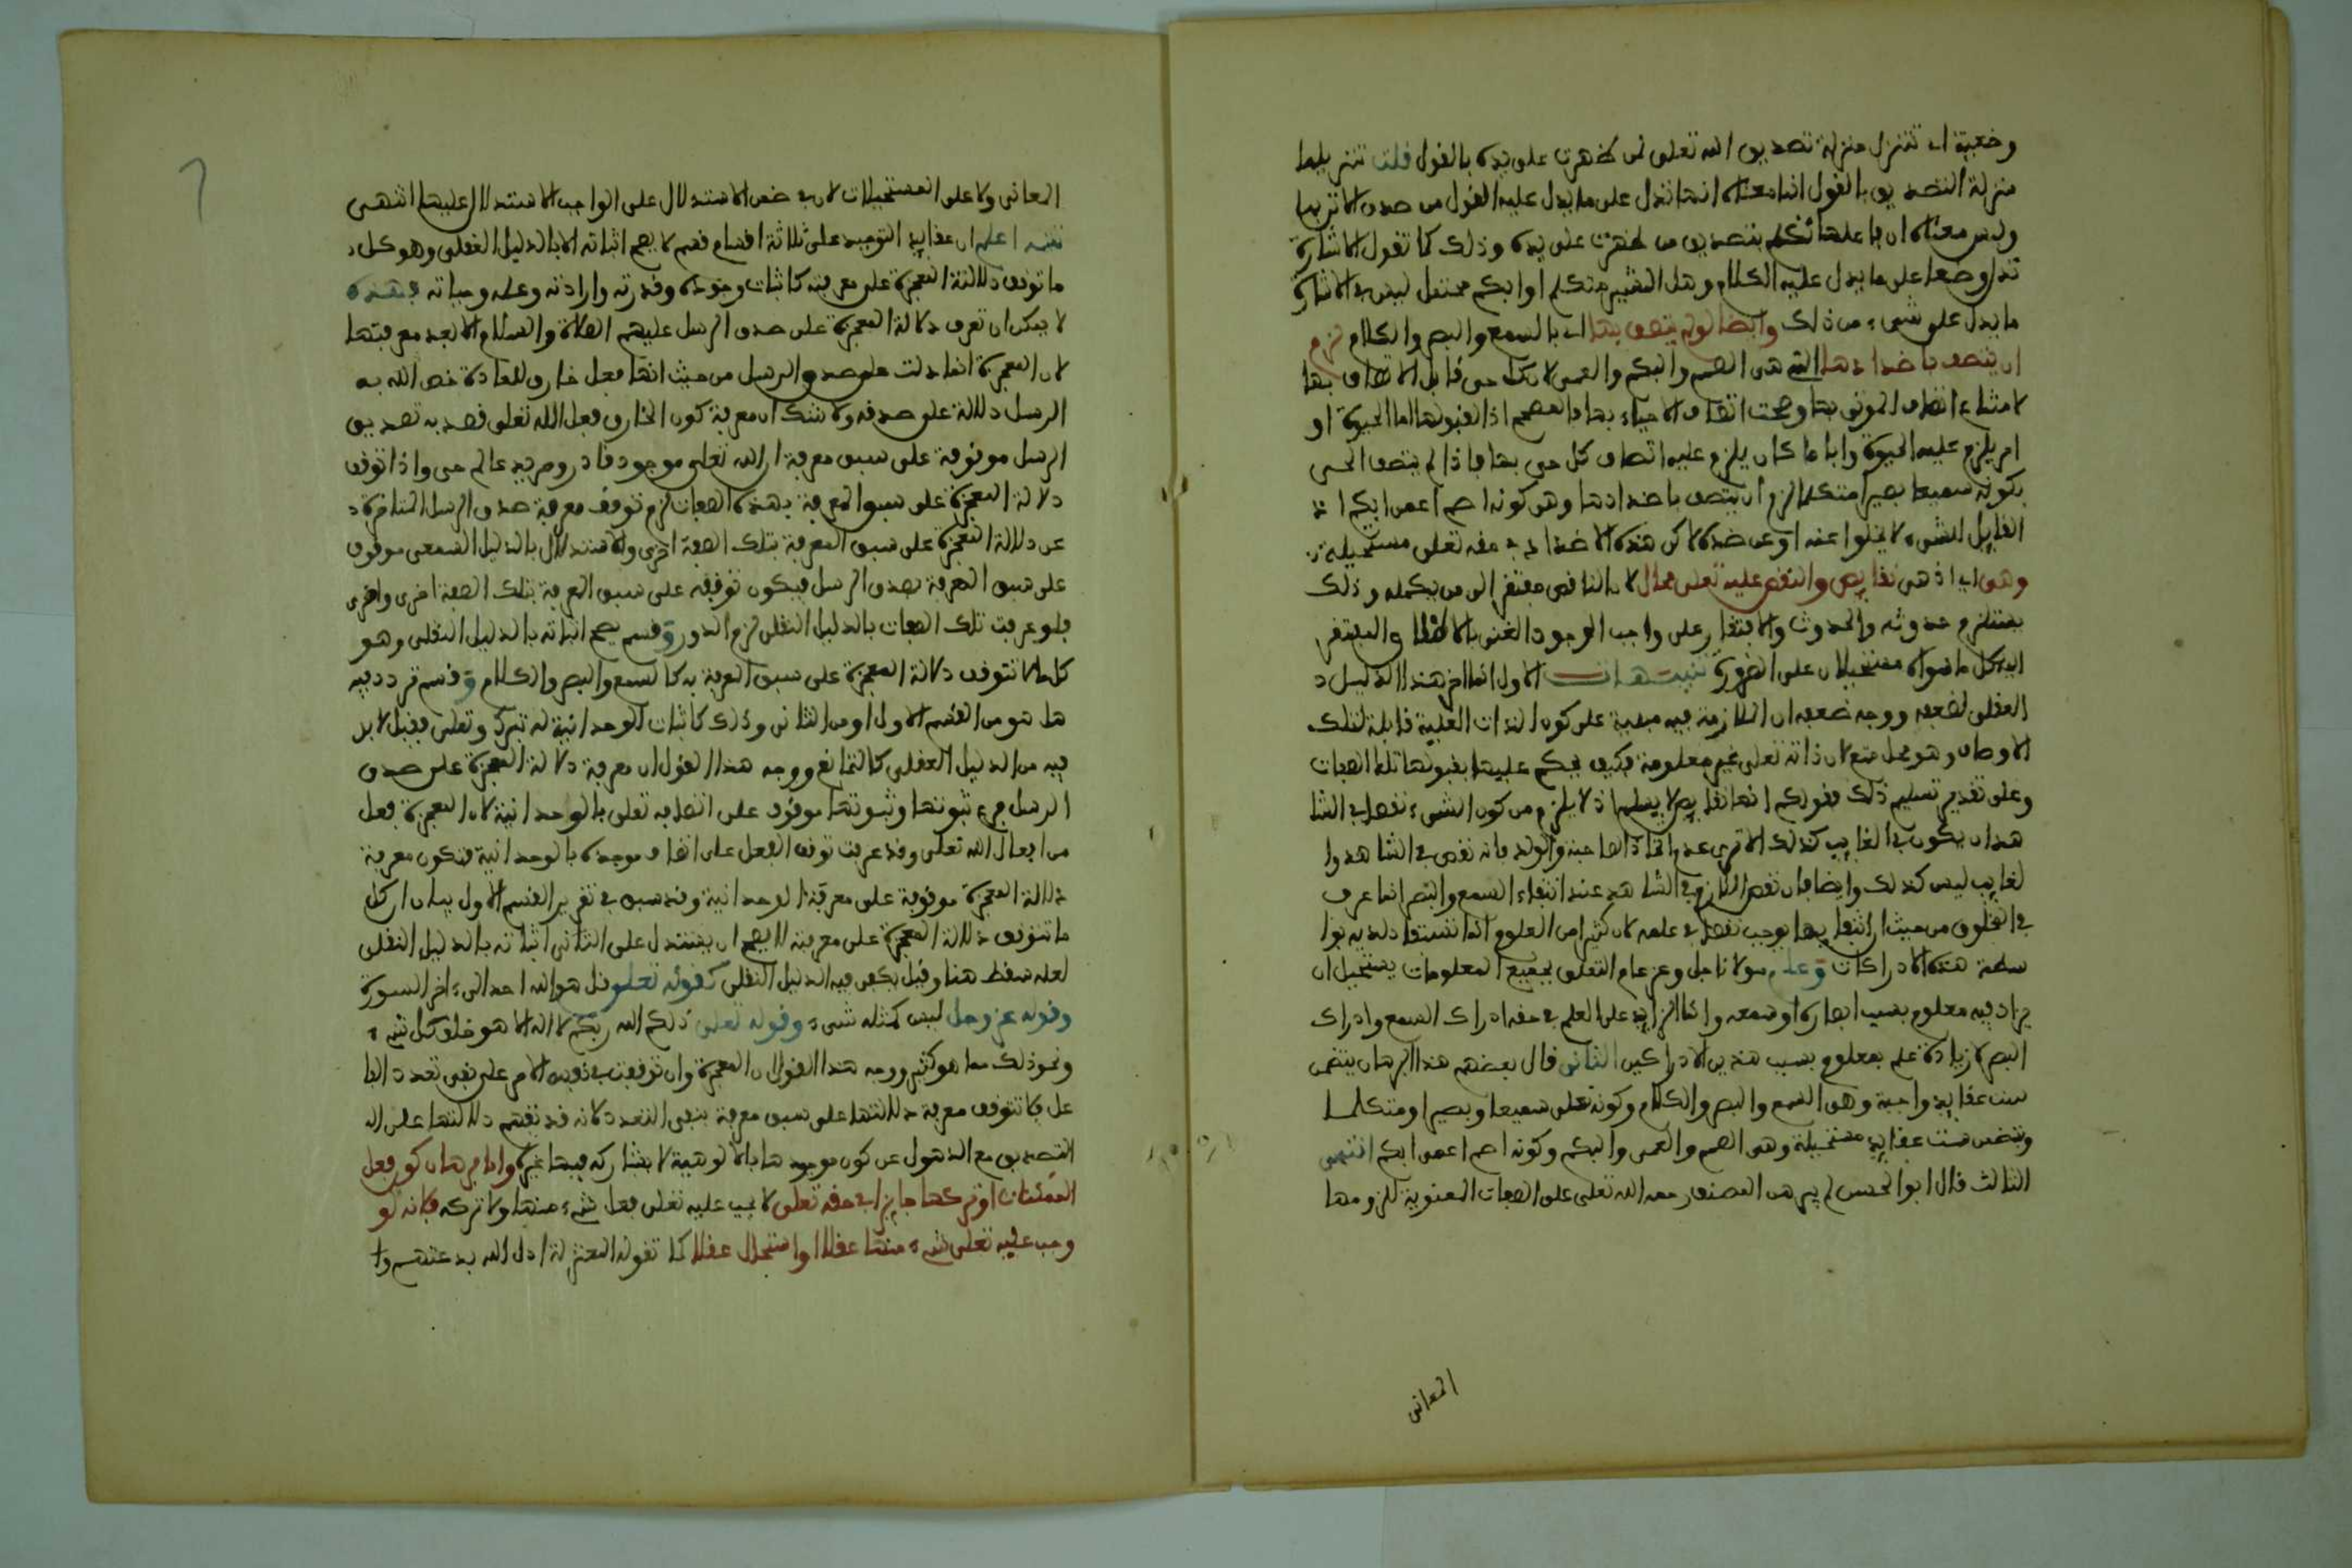 وضعية اي تتنزل منزلة تصديق الله تعلى لمن ظهرت على يده بالقول قلت تنزيلها
منزلة التصديق بالقول انما معناه انها تدل على ما يدل عليه القول من صدق الاتي بها
وليس معناه ان فاعلها تكلم بتصديق من ظهرت على يده وذلك كما تقول الاشارة
تدل وضعا على ما يدل عليه الكلام وهل المشير متكلم او ابكم محتمل ليس في الاشارة
ما يدل على شيء من ذلك وايضا لو لم يتصف بها اي بالسمع والبصر والكلام لزم
ان يتصف باضدادها التي هي الصمم والبكم والعمى لان كل حي قابل الاتصاف بها
لامتناع اتصاف الموتى بها وصحت اتصاف الاحياء بها فالمصحح اذا لقبولها اما الحيوة او
امر يلزم عليه الحيوة وايا ما كان يلزم عليه اتصاف كل حي بها فاذا لم يتصف الحي
بكونه سميعا بصيرا متكلما لزم ان يتصف باضدادها وهي كونه اصم اعمى ابكم اذ
القابل للشيء لا يخلوا عنه او عن ضده لاكن هذه الاضداد في حقه تعلى مستحيلة
وهي اي اذ هي نقايص والنقص عليه تعلى محال لان الناقص مفتقر الى من يكمله وذلك
يستلزم حدوثه والحدوث والافتقار على واجب الوجود الغني بالاطلاق المفتقر
اليه كل ما سواه مستحيلان على الضرورة تنبيهات الاول انما اخر هذا الدليل
العقلي لضعفه ووجه ضعفه ان الملازمة فيه مبنية على كون الذات العلية قابلة لتلك
الاوصاف وهو محل منع لان ذاته تعلى غير معلومة فكيف يحكم عليها بقبولها تلك الصفات
وعلى تقدير تسليم ذلك فقولكم انها نقايص لا يسلم اذ لا يلزم من كون الشيء نقصا في الشا
هد ان يكون في الغايب كذلك الا ترى عدم اتخاذ الصاحبة والولد فانه نقص في الشاهد وا
لغايب ليس كذلك وايضا فان نقص اللازم في الشاهد عند انتفاء السمع والبصر انما عرف
في المخلوق من حيث ان انتفايها يوجب نقصا في علمه لان كثيرا من العلوم انما تستفاد لديه بوا
سطة هذه الادراكات وعلم مولانا جل وعز عام التعلق بجميع المعلومات يستحيل ان
يزاد فيه معلوم بسبب ابصاره او سمعه وانما الزايد على العلم في حقه ادراك السمع وادراك
البصر لا زيادة علم بمعلوم بسبب هذين الادراكين الثاني قال بعضهم هذا البرهان يتضمن
ست عقايد واجبة وهي السمع والبصر والكلام وكونه تعلى سميعا وبصيرا ومتكلما
وتتضمن ست عقايد مستحيلة وهي الصمم والعمى والبكم وكونه اصم اعمى ابكم انتهى
الثالث قال ابو الحسن لم يبرهن المصنف رحمه الله تعلى على الصفات المعنوية للزومها
المعاني
المعاني ولا على المستحيلات لان في ضمن الاستدلال على الواجب الاستدلال عليها انتهى
تتمة اعلم ان عقايد التوحيد على ثلاثة اقسام قسم لا يصح اثباته الا بالدليل العقلي وهو كل
ما توقف دلالة المعجزة على معرفته كاثبات وجوده وقدرته وارادته وعلمه وحياته فهذه
لا يمكن ان تعرف دلالة المعجزة على صدق الرسل عليهم الصلاة والسلام الا بعد معرفتها
لان المعجزة انما دلت على صدق الرسل من حيث انها فعل خارق للعادة خص الله به
الرسل دلالة على صدقه ولا شك ان معرفة كون الخارق فعل الله تعلى قصد به تصديق
الرسل موقوفة على سبق معرفة ان الله تعلى موجود قادر ومريد عالم حي واذا توقف
دلالة المعجزة على سبق المعرفة بهذه الصفات لزم توقف معرفة صدق الرسل المتاخرة
عن دلالة المعجزة على سبق المعرفة بتلك الصفة اخرى والاستدلال بالدليل السمعي موقوف
على سبق المعرفة بصدق الرسل فيكون توقفه على سبق المعرفة بتلك الصفة اخرى واخرى
فلو عرفت تلك الصفات بالدليل النقلي لزم الدور وقسم يصح اثباته بالدليل النقلي وهو
كل ما لا تتوقف دلالة المعجزة على سبق المعرفة به كالسمع والبصر والكلام وقسم تردد فيه
هل هو من القسم الاول او من الثاني وذلك كاثبات الوحدانية له تبارك وتعلى فقيل لا بد
فيه من الدليل العقلي كالتمانع ووجه هذا القول ان معرفة دلالة المعجزة على صدق
الرسل فرع ثبوتها وثبوتها موقوف على اتصافه تعلى بالوحدانية لان المعجزة فعل
من افعال الله تعلى وقد عرفت توقف الفعل على اتصاف موجده بالوحدانية فتكون معرفة
دلالة المعجزة موقوفة على معرفة الوحدانية وقد سبق في تقرير القسم الاول بيان ان كل
ما تتوقف دلالة المعجزة على معرفته لا يصح ان يستدل على الثاني اثباته بالدليل النقلي
لعله سقط هنا وقيل يكفي فيه الدليل النقلي كقوله تعلى قل هو الله احد الى ءاخر السورة
وقوله عز وجل ليس كمثله شيء وقوله تعلى ذلكم الله ربكم لا اله الا هو خلق كل شيء
ونحو ذلك مما هو كثير ووجه هذا القول ان المعجزة وان توقفت في نفس الامر على نفي تعدد الفا
عل فلا تتوقف معرفة دلالتها على سبق معرفة بنفي التعدد لانه قد تفهم دلالتها على ال
التصديق مع الذهول عن كون موجدها بالالوهية لا يشاركه فيها غيره واما برهان كون فعل
الممكنات او تركها جايزا في حقه تعلى لا يجب عليه تعلى فعل شيء منها ولا تركه فلانه لو
وجب عليه تعلى شيء منها عقلا او استحال عقلا كما تقوله المعتزلة اذل الله بدعتهم وا